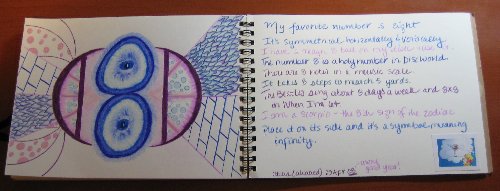 My favorite number is eight
It's symmetrical horizontally & vertically
I have a magic 8 ball on my desk
The number 8 is a holy number in Discworld.
There are 8 notes in a music scale.
It takes 8 steps to march 5 yards.
The Beatles sang about 8 days a week and
on When I'm 64.
I am a Scorpio - the 8th sign of the zodiac.
Place it on its side and it's a symbol meaning
infinity.